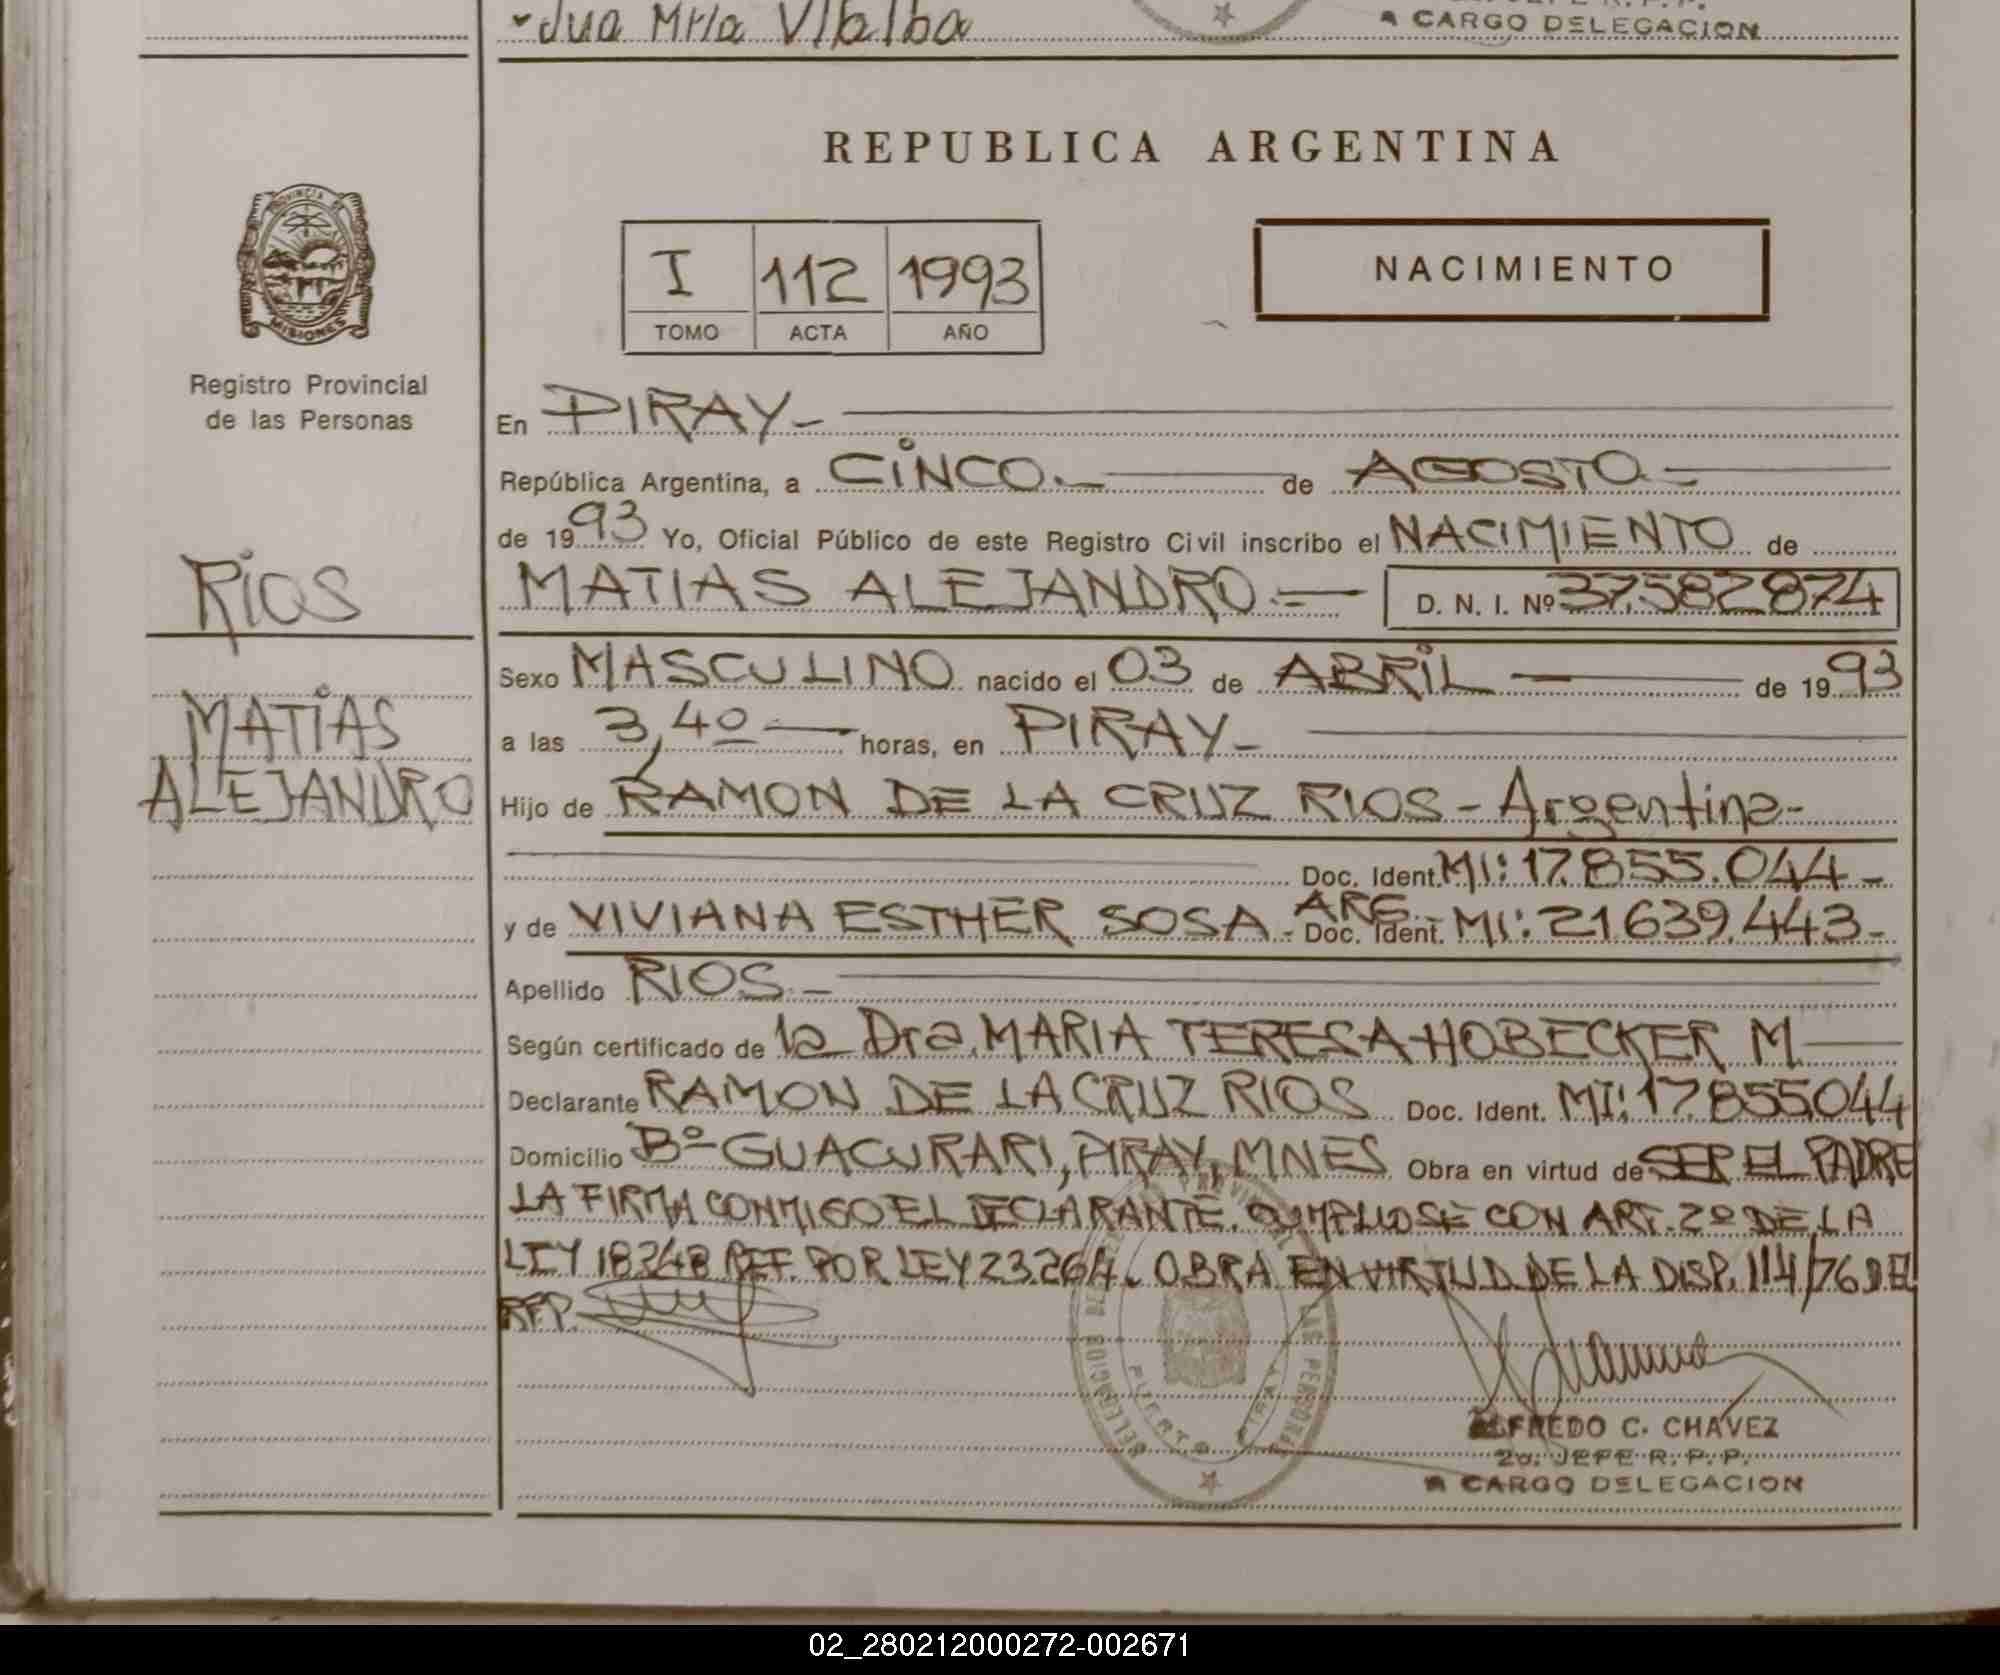 Jua Mria Vlalba
A CARGO DELEGACION
REPUBLICA ARGENTINA
PROVINCIA DE
MISIONES
Registro Provincial
de las Personas
I 112 1993
TOMO ACTA AÑO
NACIMIENTO
En PIRAY-
República Argentina, a CINCO.- de AGOSTO-
de 1993 Yo, Oficial Público de este Registro Civil inscribo el NACIMIENTO de
RIOS
MATIAS ALEJANDRO.= D. N. I. Nº 37.582 874
MATIAS
ALEJANDRO
Sexo MASCULINO nacido el 03 de ABRIL de 1993
a las 3,40 horas, en PIRAY-
Hijo de RAMON DE LA CRUZ RIOS - Argentina-
Doc. Ident. MI: 17.855.044-
y de VIVIANA ESTHER SOSA- ARG. Doc. Ident. MI: 21639.443-
Apellido RIOS.-
Según certificado de la Dra. MARIA TERESA HOBECKER M.
Declarante RAMON DE LA CRUZ RIOS Doc. Ident. MI: 17.855044
Domicilio Bº GUACURARI, PIRAY, MNES Obra en virtud de SER EL PADRE
LA FIRMA CONMIGO EL DECLARANTE. CUMPLIOSE CON ART. 2º DE LA
LEY 18248 REF. POR LEY 23.264. OBRA EN VIRTUD DE LA DISP. 114/76 DEL
RPP.
DELEGACION PROVINCIAL LAS PERSONAS
PUERTO PIRAY
ALFREDO C. CHAVEZ
2o. JEFE R. P. P.
A CARGO DELEGACION
02_280212000272-002671